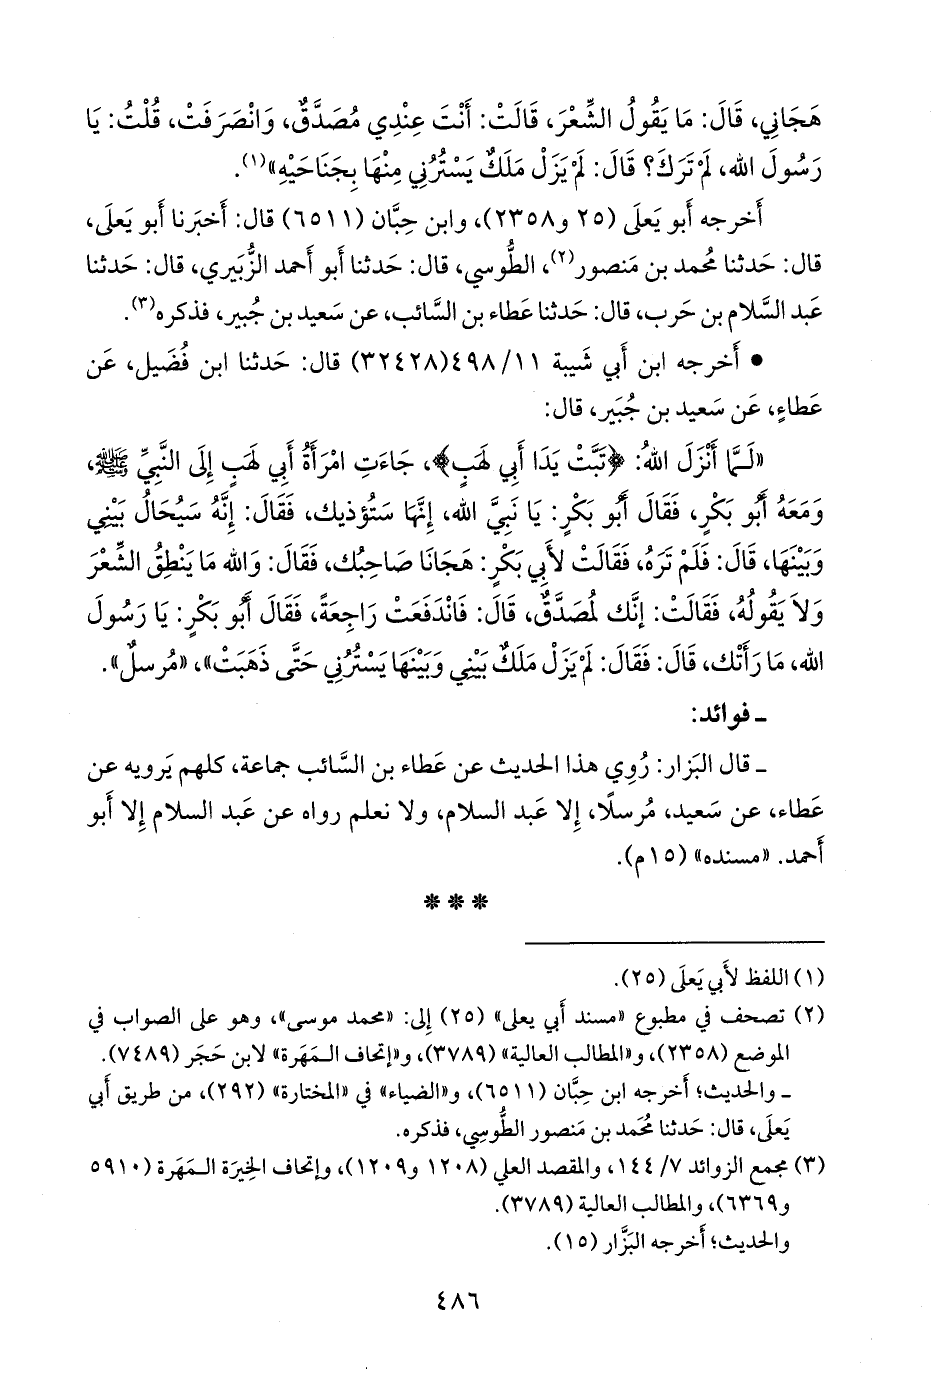 هَجَانِي، قَالَ: مَا يَقُولُ الشِّعْرَ، قَالَتْ: أَنْتَ عِنْدِي مُصَدَّقٌ، وَانْصَرَفَتْ، قُلْتُ: يَا
رَسُولَ الله، لَمْ تَرَكَ؟ قَالَ: لَمْ يَزَلْ مَلَكٌ يَسْتُرُنِي مِنْهَا بِجَنَاحَيْهِ»(١).
أَخرجه أَبو يَعلَى (٢٥ و٢٣٥٨)، وابن حِبَّان (٦٥١١) قال: أَخبَرنا أَبو يَعلَى،
قال: حَدثنا مُحمد بن مَنصور(٢)، الطُّوسي، قال: حَدثنا أَبو أَحمد الزُّبيري، قال: حَدثنا
عَبد السَّلام بن حَرب، قال: حَدثنا عَطاء بن السَّائب، عَن سَعيد بن جُبير، فذكره(٣).
• أَخرجه ابن أَبي شَيبة ١١/ ٤٩٨(٣٢٤٢٨) قال: حَدثنا ابن فُضَيل، عَن
عَطاءٍ، عَن سَعيد بن جُبَير، قال:
«لَـمَّا أَنْزَلَ اللهُ: ﴿تَبَّتْ يَدَا أَبِي لَهَبٍ﴾، جَاءَتِ امْرَأَةُ أَبِي لَهَبٍ إِلَى النَّبِيِّ ﷺ،
وَمَعَهُ أَبُو بَكْرٍ، فَقَالَ أَبُو بَكْرٍ: يَا نَبِيَّ الله، إِنَّهَا سَتُؤْذِيك، فَقَالَ: إِنَّهُ سَيُحَالُ بَيْنِي
وَبَيْنَهَا، قَالَ: فَلَمْ تَرَهُ، فَقَالَتْ لأَبِي بَكْرٍ: هَجَانَا صَاحِبُك، فَقَالَ: وَالله مَا يَنْطِقُ الشِّعْرَ
وَلاَ يَقُولُهُ، فَقَالَتْ: إِنَّك لَمُصَدَّقٌ، قَالَ: فَانْدَفَعَتْ رَاجِعَةً، فَقَالَ أَبُو بَكْرٍ: يَا رَسُولَ
الله، مَا رَأَتْك، قَالَ: فَقَالَ: لَمْ يَزَلْ مَلَكٌ بَيْنِي وَبَيْنَهَا يَسْتُرُنِي حَتَّى ذَهَبَتْ»، «مُرسلٌ».
ـ فوائد:
ـ قال البَزار: رُوِي هذا الحديث عن عَطاء بن السَّائب جماعة، كلهم يَرويه عن
عَطاء، عن سَعيد، مُرسلًا، إِلا عَبد السلام، ولا نعلم رواه عن عَبد السلام إِلا أَبو
أَحمد. «مسنده» (١٥م).
* * *
(١) اللفظ لأَبي يَعلَى (٢٥).
(٢) تصحف في مطبوع «مسند أَبي يعلى» (٢٥) إِلى: «محمد موسى»، وهو على الصواب في
الموضع (٢٣٥٨)، و«المطالب العالية» (٣٧٨٩)، و«إتحاف الـمَهَرة» لابن حَجَر (٧٤٨٩).
ـ والحديث؛ أَخرجه ابن حِبَّان (٦٥١١)، و«الضياء» في «المختارة» (٢٩٢)، من طريق أَبي
يَعلَى، قال: حَدثنا مُحَمد بن مَنصور الطُّوسِي، فذكره.
(٣) مجمع الزوائد ٧/ ١٤٤، والمقصد العلي (١٢٠٨ و١٢٠٩)، وإتحاف الخِيَرَة الـمَهَرة (٥٩١٠
و٦٣٦٩)، والمطالب العالية (٣٧٨٩).
والحديث؛ أَخرجه البَزَّار (١٥).
٤٨٦